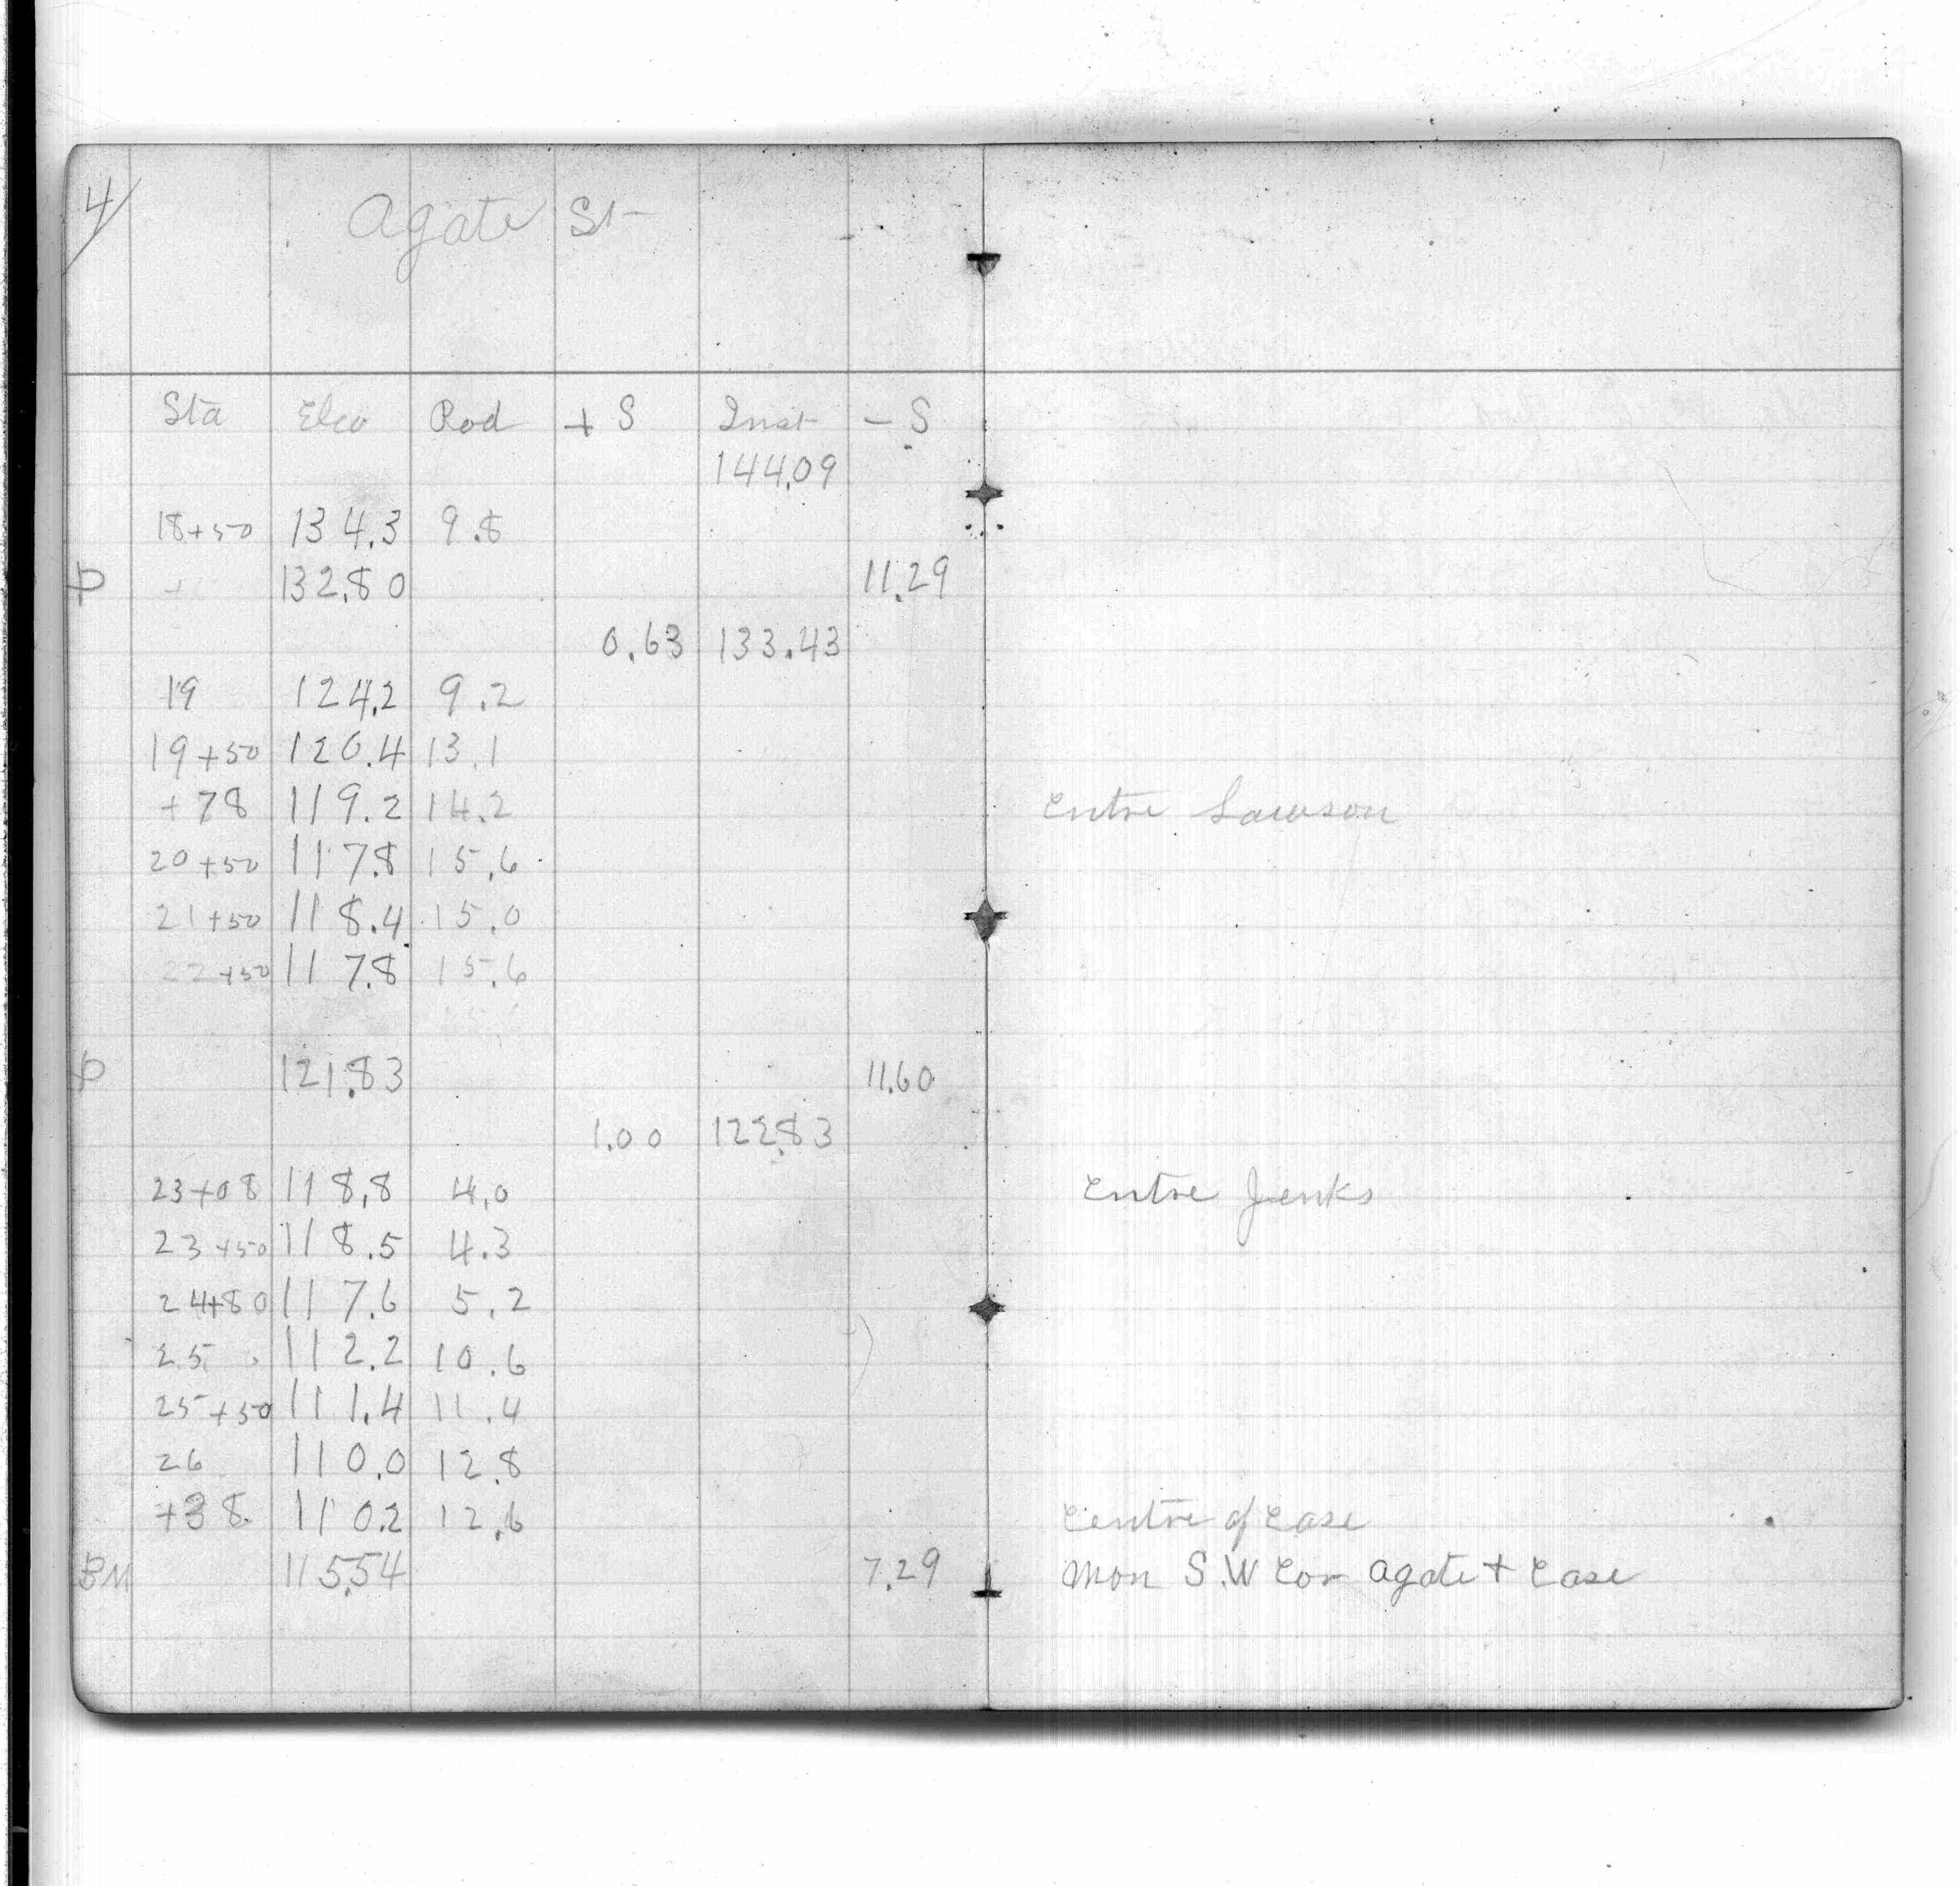 4/ Agate St
Sta Elev Rod + S Inst - S
144.09
18+50 134.3 9.8
132.80 11.29
0.63 133.43
19 124.2 9.2
19+50 120.4 13.1
+78 119.2 14.2 Centre Lawson
20+50 117.8 15.6
21+50 118.4 15.0
22+50 117.8 15.6
121.83 11.60
1.00 122.83
23+08 118.8 4.0 Centre Jenks
23+50 118.5 4.3
24+80 117.6 5.2
25 112.2 10.6
25+50 111.4 11.4
26 110.0 12.8
+38 110.2 12.6 Centre of Case
BM 115.54 7.29 Mon S.W Cor Agate + Case